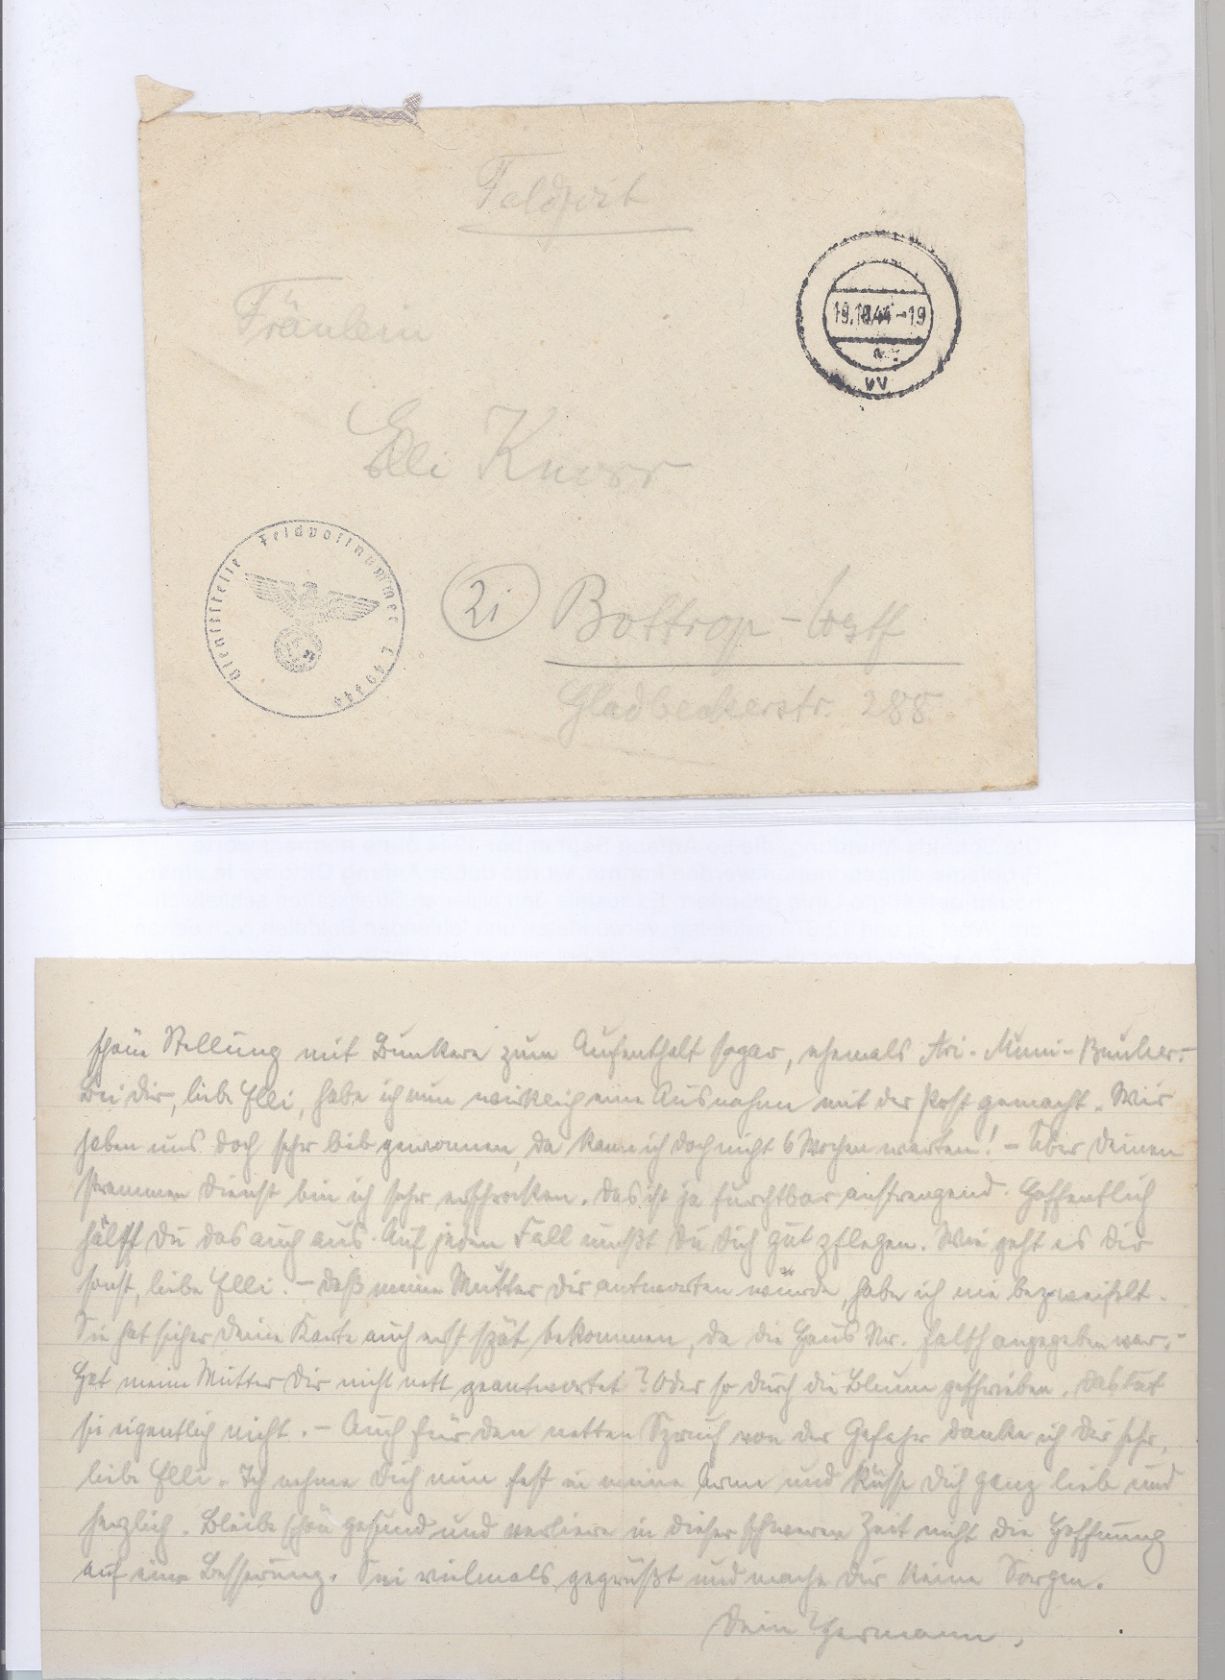 Feldpost
Fräulein
19.10.44-19
Elli Knorr
Dienststelle Feldpostnummer L
21 Bottrop-Westf
Gladbeckerstr. 288
schöne Stellung mit Bunkern zum Aufenthalt sogar, ehemals Ari-Muni-Bunker.-
Bei dir, liebe Elli, habe ich nun wirklich eine Ausnahme mit der Post gemacht. Wir
haben uns doch sehr lieb gewonnen, da kann ich doch nicht 6 Wochen warten! - Über Deinen
strammen Dienst bin ich sehr erschrocken. Das ist ja furchtbar anstrengend. Hoffentlich
hälst Du das auch aus. Auf jeden Fall mußt Du Dich gut pflegen. Wie geht es Dir
sonst, liebe Elli. - Daß meine Mutter Dir antworten würde, habe ich nie bezweifelt.
Sie hat sicher Deine Karte auch erst spät bekommen, da die Haus Nr. falsch angegeben war.-
Hat meine Mutter Dir nicht nett geantwortet? Oder so durch die Blume geschrieben. Das tut
sie eigentlich nicht. - Auch für den netten Spruch von der Gefahr danke ich Dir sehr,
liebe Elli. Ich nehme Dich nun fest in meine Arme und küsse Dich ganz lieb und
herzlich. Bleibe schön gesund und verliere in dieser schweren Zeit nicht die Hoffnung
auf eine Besserung. Sei vielmals gegrüßt und mache Dir keine Sorgen.
Dein Hermann.